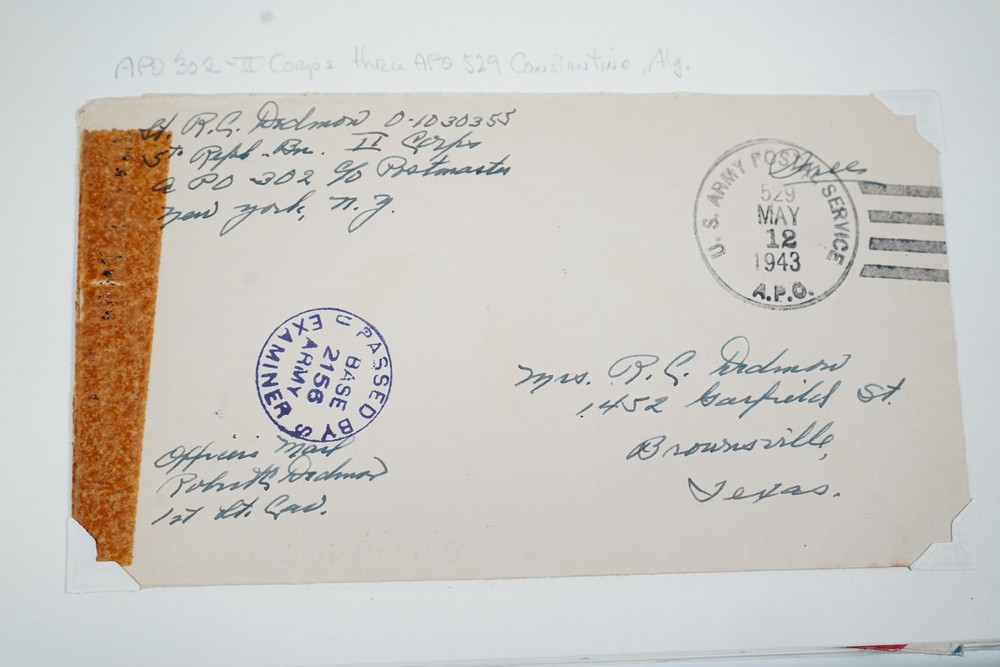 APO 302 - II Corps thru APO 529 Constantine, Alg.
Lt. R.G. Dedmon O-1030355
5th Repl. Bn. II Corps
APO 302 c/o Postmaster
New York, N.Y.
U.S. ARMY POSTAL SERVICE
529
MAY
12
1943
A.P.O.
Free
PASSED BY U S
BASE
2156
ARMY
EXAMINER
Mrs. R.G. Dedmon
1452 Garfield St.
Brownsville,
Texas.
Officers Mail
Robert G. Dedmon
1st Lt. Cav.